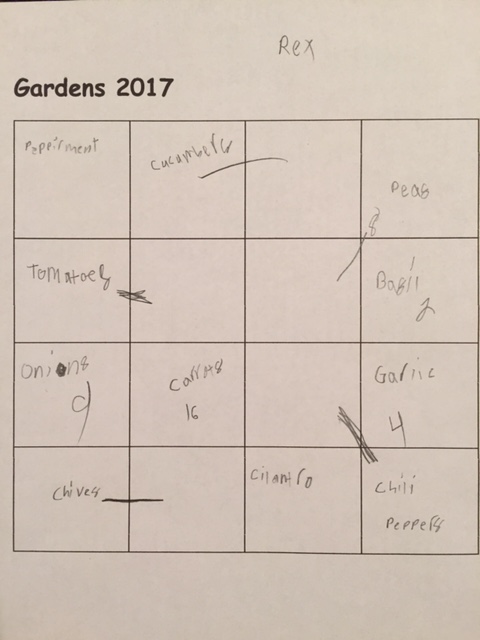 Rex
Gardens 2017
Peppirment
Cucumbers
Peas
8
Tomatoes
Basil
2
Onions
9
Carrots
16
Garlic
4
Chives
Cilantro
Chili
Peppers